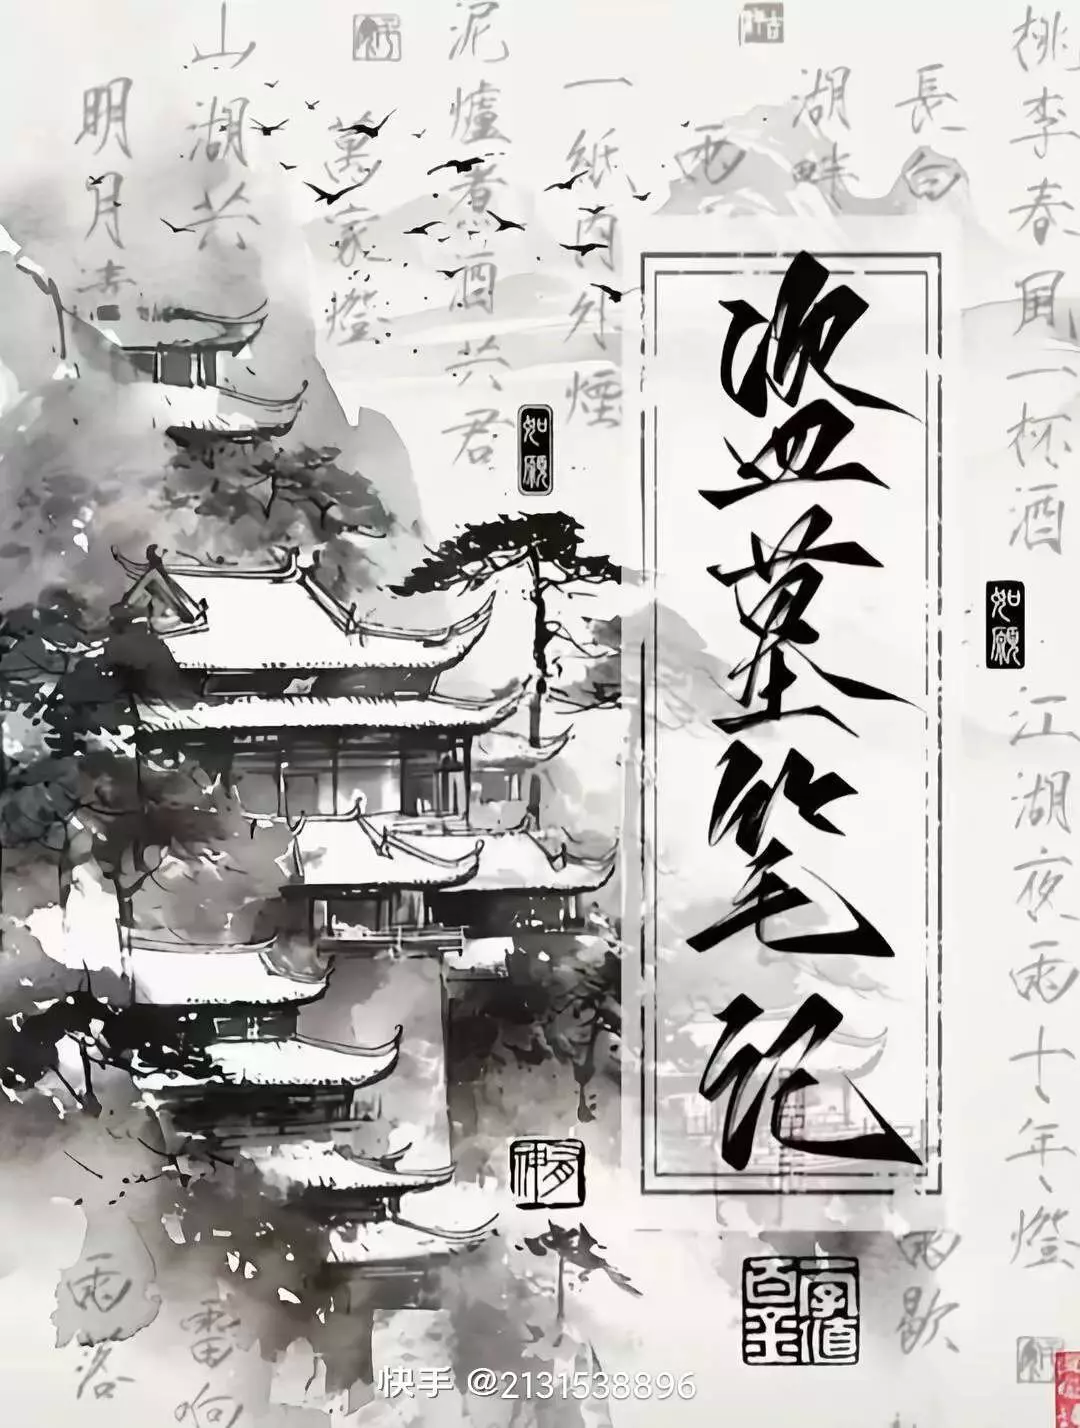 桃李春風一杯酒
江湖夜雨十年燈
長白
雨歇
湖畔
雨
一紙丙外煙
泥爐煮酒共君
萬家燈
山湖共
雷响
明月清
雨落
盗墓笔记
如願
如願
快手 @2131538896